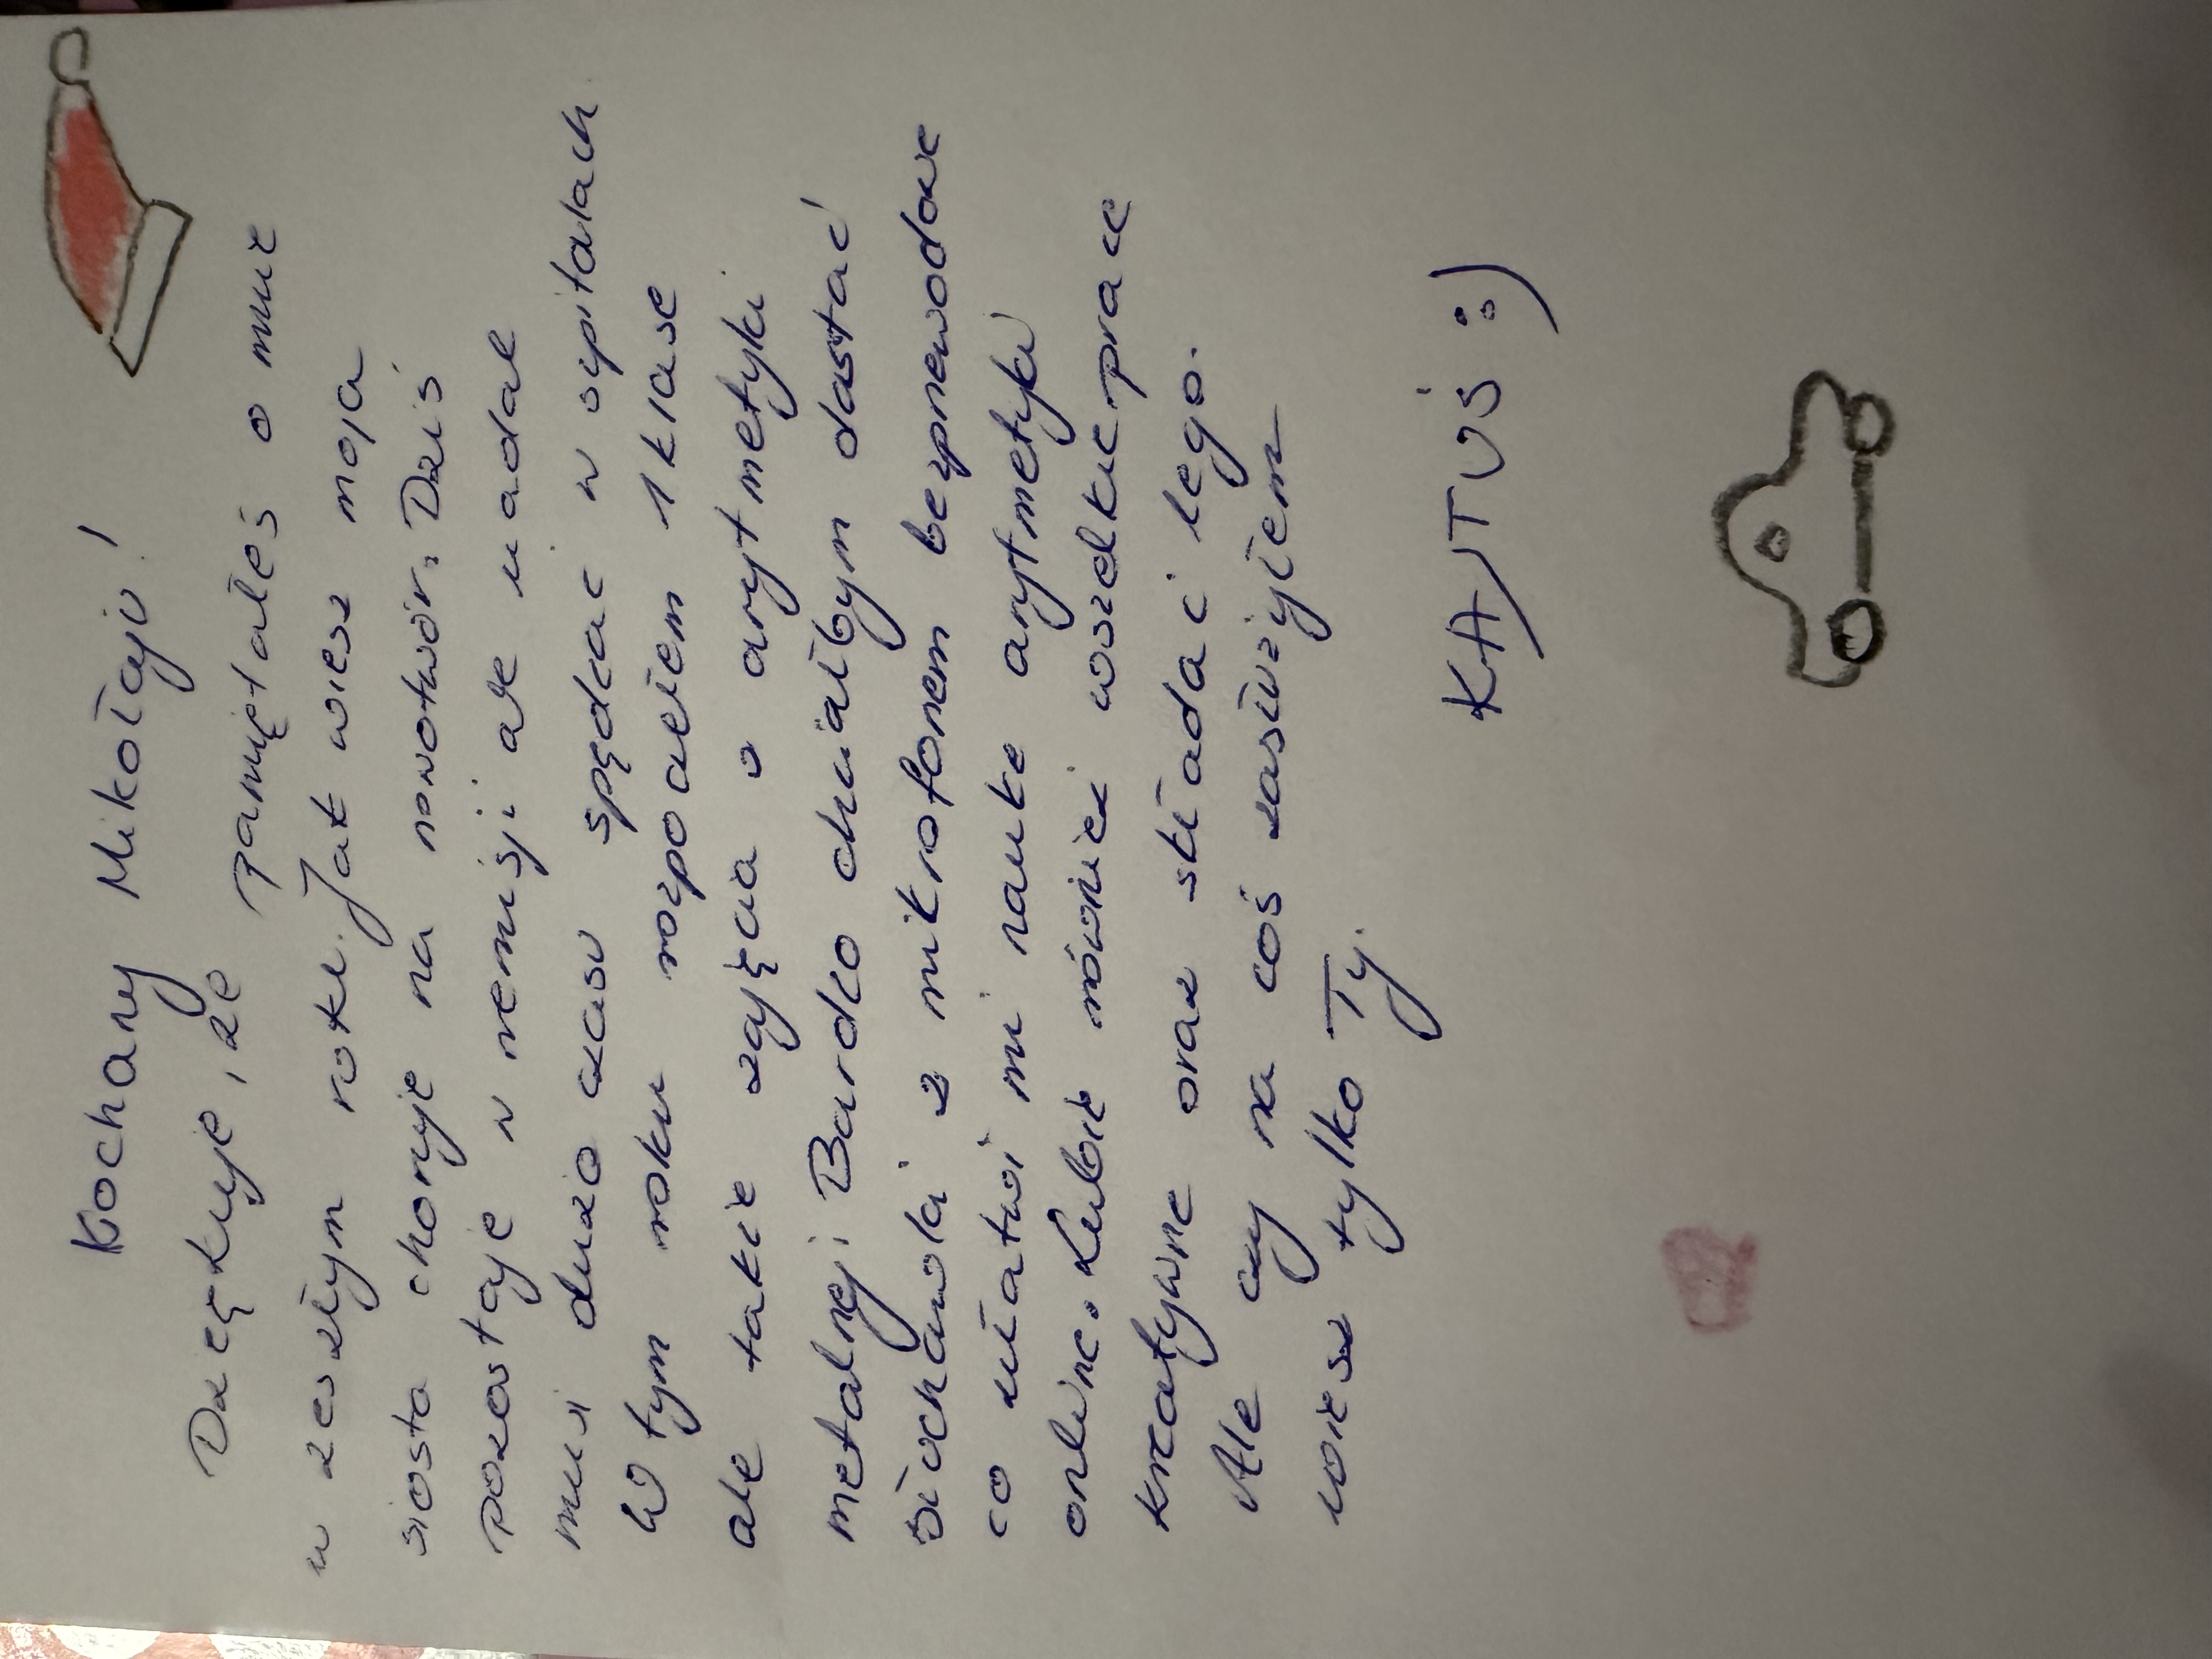 Kochany Mikołaju!
Dziękuje, że pamiętałeś o mnie
w zeszłym roku. Jak wiesz moja
siosta choruje na nowotwór. Dziś
pozostaje w remisji ale nadal
musi dużo czasu spędzać w szpitalach
W tym roku rozpoczełem 1 klase
ale takie zajęcia o arytmetyki
metalnej. Bardzo chciałbym dostać
słuchawki z mikrofonem bezprzewodowe
co ułatwi mi nauke arytmetyki
online. Lubie również wszelkie prace
kreatywne oraz składać lego.
Ale czy na coś zasłużyłem
wiesz tylko Ty.
KAJTUŚ :)